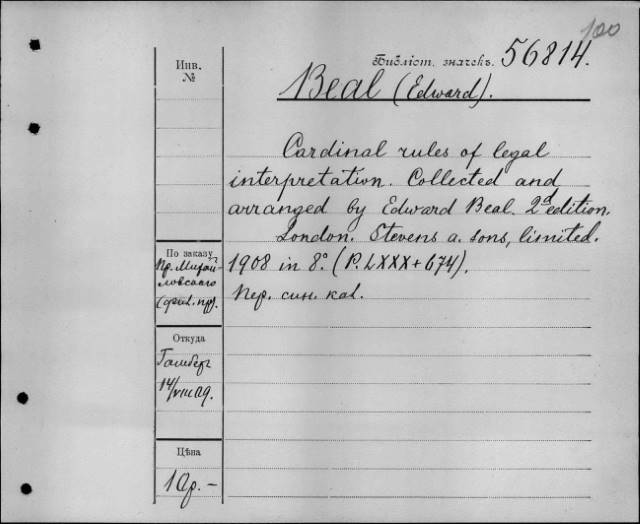 100
Библіот. значекъ. 56814.
Инв.
№
Beal (Edward).
Cardinal rules of legal
interpretation. Collected and
arranged by Edward Beal. 2d edition.
London. Stevens a. sons, limited.
1908 in 8°. (P. LXXX + 674).
Пер. син. кал.
По заказу
Пр. Михай-
ловскаго
Откуда
14/VIII 09.
Цѣна
10р. –